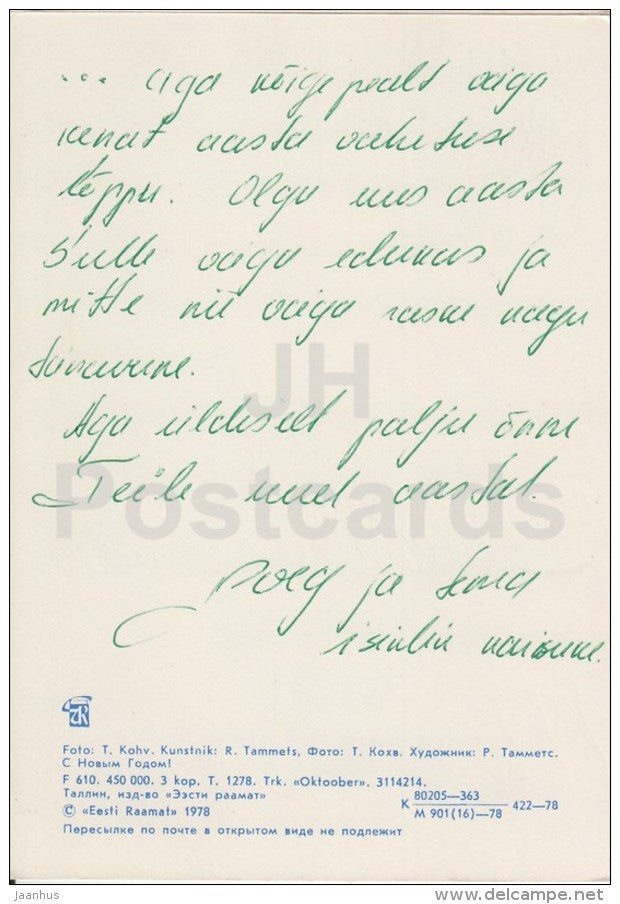 ... Aga kõigepealt väiga
kenat aasta vahetuse
lõppu. Olgu uus aasta
Sulle väiga edukas ja
mitte nii väiga raske nagu
Aga üldiselt palju õnne
Teile uuel aastal.
Poeg ja tema
isiklik naisuke.
JH
Postcards
Foto: T. Kohv. Kunstnik: R. Tammets, Фото: Т. Кохв. Художник: Р. Тамметс.
С Новым Годом!
F 610. 450 000. 3 kop. T. 1278. Trk. «Oktoober». 3114214.
Таллин, изд-во «Ээсти раамат»
© «Eesti Raamat» 1978
К 80205—363 / М 901(16)—78 422—78
Пересылке по почте в открытом виде не подлежит
jaanhus
www.delcampe.net